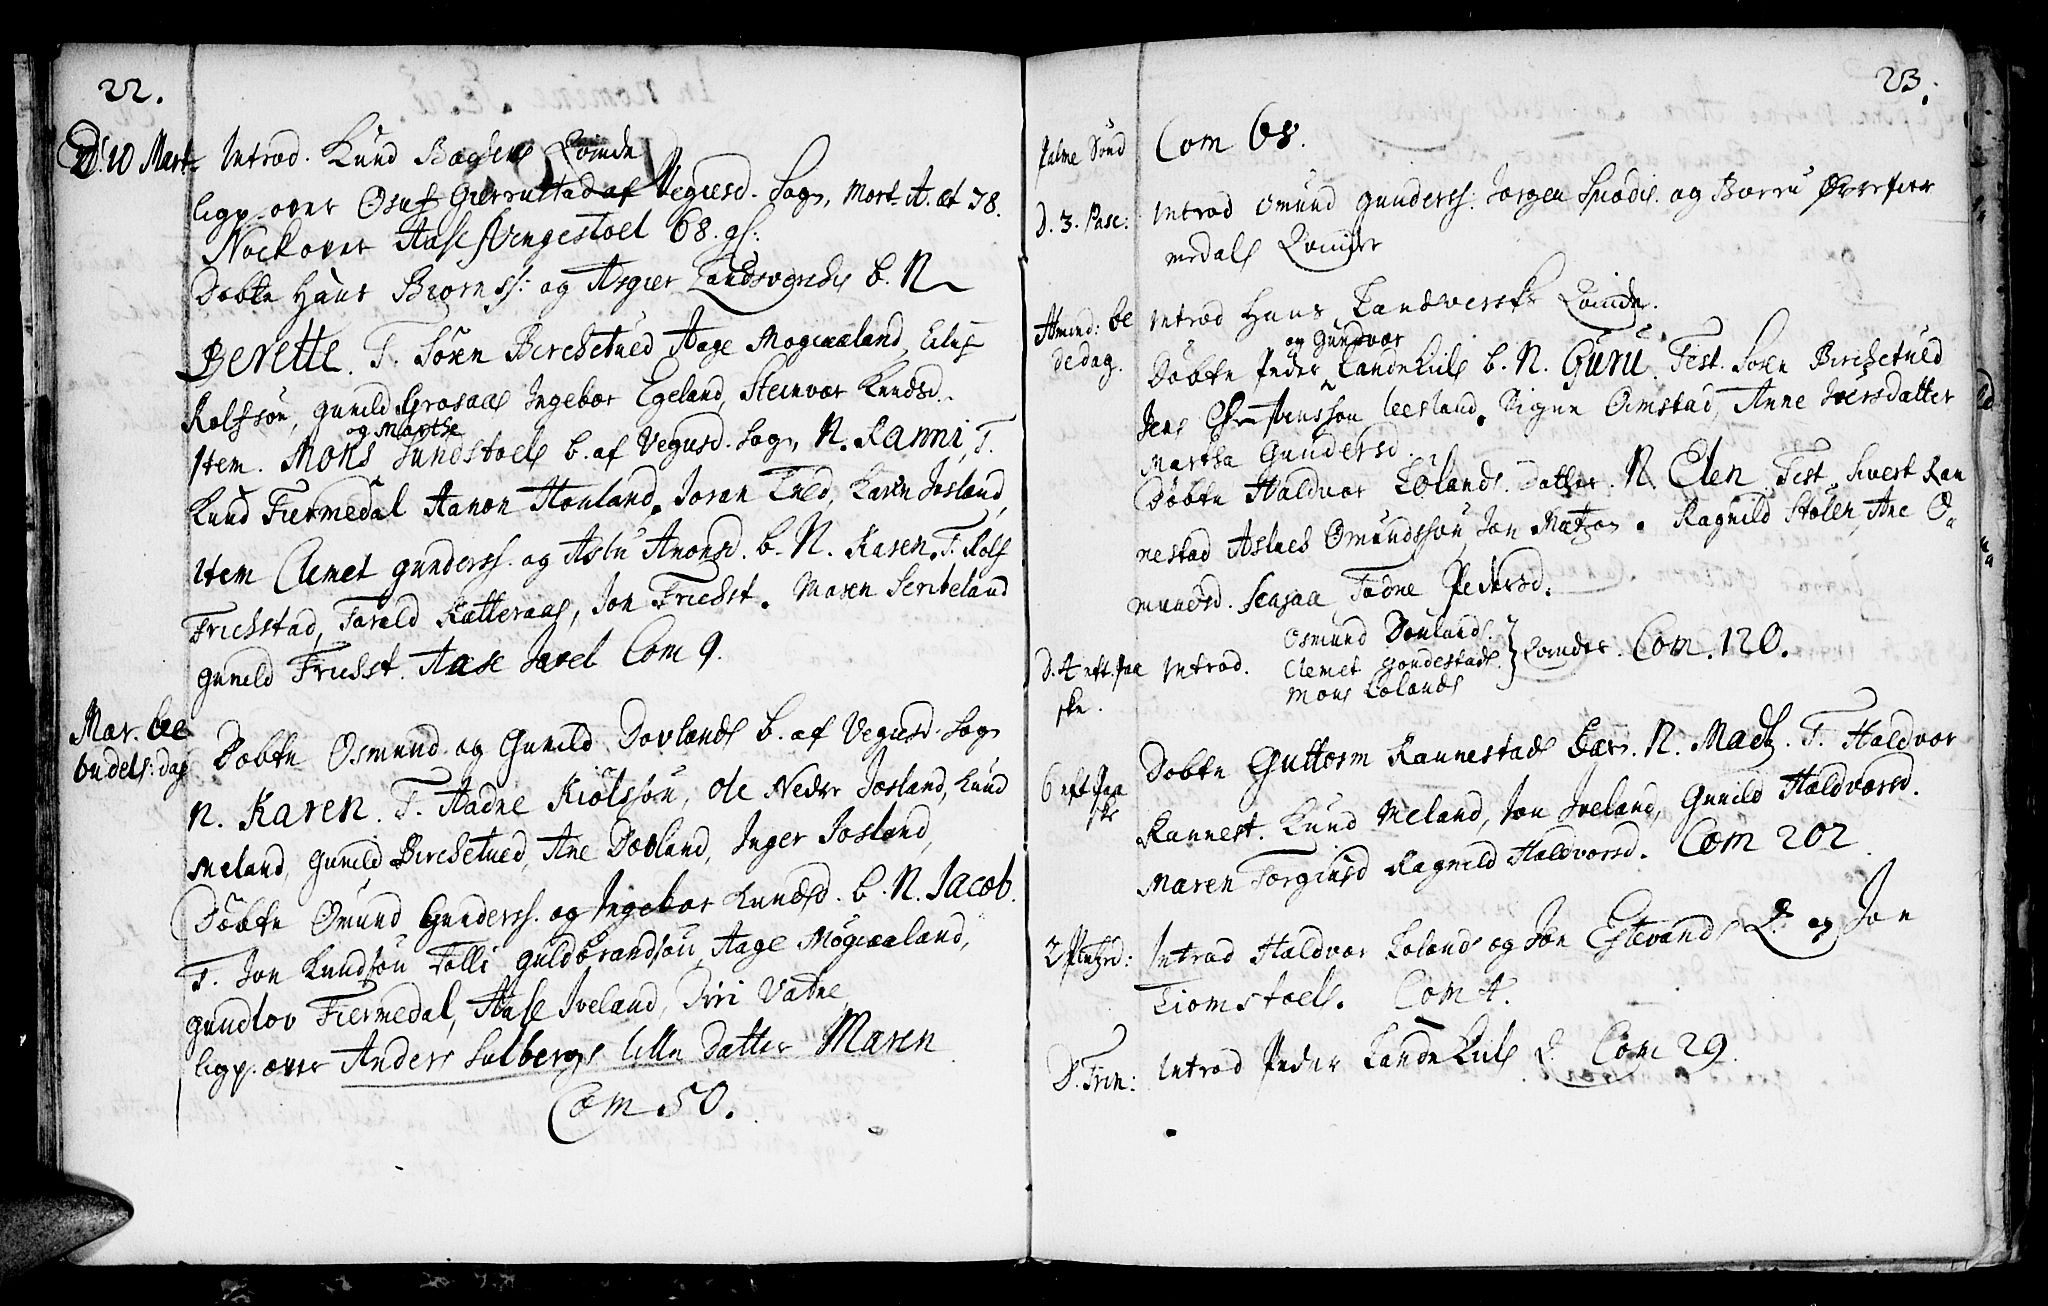 22.
D. 10 Mart. Introd. Knud Bagiels Qvinde
ligp. over Osuf Gierrustad af Vegusd. Sogn, Mort. A. æt 78.
Nock over Aase Vengestoel 68. gl:
Døbte Hans Biørnss: og Asgier Landsverchs b. N
Berette. T. Sören Birchetued, Aage Mogiaaland, Eiluf
Rolfsøn, Gunild Grosaas Ingebor Egeland, Steinvor Knudsd.
og Marthe
Item. Mons Sundstoels b. af Vegusd. Sogn, N. Ranni, T.
Knud Fiermedal Aanon Honland, Joran Tued, Karen Josland,
Item Clemet Gunderss. og Aslu Anonsd. b. N. Karen. T. Rolf
Frichstad, Tarald Ratteraas, Jon Frichst. Maren Scribeland
Gunild Frichst. Aase Javel Com 9.
Mar. be
budels: dag Døbte Osmund og Gunild Dovlands b. af Vegusd. Sogn
N. Karen. T. Hadne Kiölssön, Ole Nedre Josland, Knud
Meland, Gunild Birchetued, Ane Dovland, Inger Josland,
Döbte Omund Gunderss. og Ingebor Knudsd. b. N. Jacob.
T. Jon Knudsøn Tolli Guldbrandsøn, Aage Mogiaaland,
Gundlov Fiermedal, Aase Iveland, Siri Vatne
ligp. over Anders Sulbergs lille Datter Maren
Com 50.
23.
Palme Sønd Com 68.
D. 3. Pasc: Introd Omund Gunderss: Jorgen og Børru Øvrefier
medals Qvinder
Almind: be
dedag. Introd Hans Landverchs Qvinde.
og Gunvor
Döbte Peder Landekiils b. N. Guru. Test. Sören Birchetued
Jens Jensson Leesland. Signe Omstad, Anne Iversdatter
Martha Gundersd.
Döbte Haldvor Lolands Datter. N. Elen Test. Sivert Ran
nestad Aslach Omundssøn, Jon Matzon. Ragnild Stølen, Ane O-
mundsd. Senjaa, Todne Pedersd.
D. 4 eft. Paa
ske. Introd. Osmund Dovlands.
Clemet Gondestads.
Mons Lolands } Qvinder. Com. 120.
6 eft Paa
ske Döbte Guttorm Rannestads Barn. N. Madtz. T. Haldvor
Rannest. Knud Meland, Jon Iveland, Gunild Haldvorsd.
Maren Torgiusd Ragnild Haldvorsd. Com 202
2 Pintzed: Introd Haldvor Lolands og Jon Estevands Q. og Jon
Tiomstoels. Com 4.
D. Trin: Introd Peder Landekiils Q. Com 29.